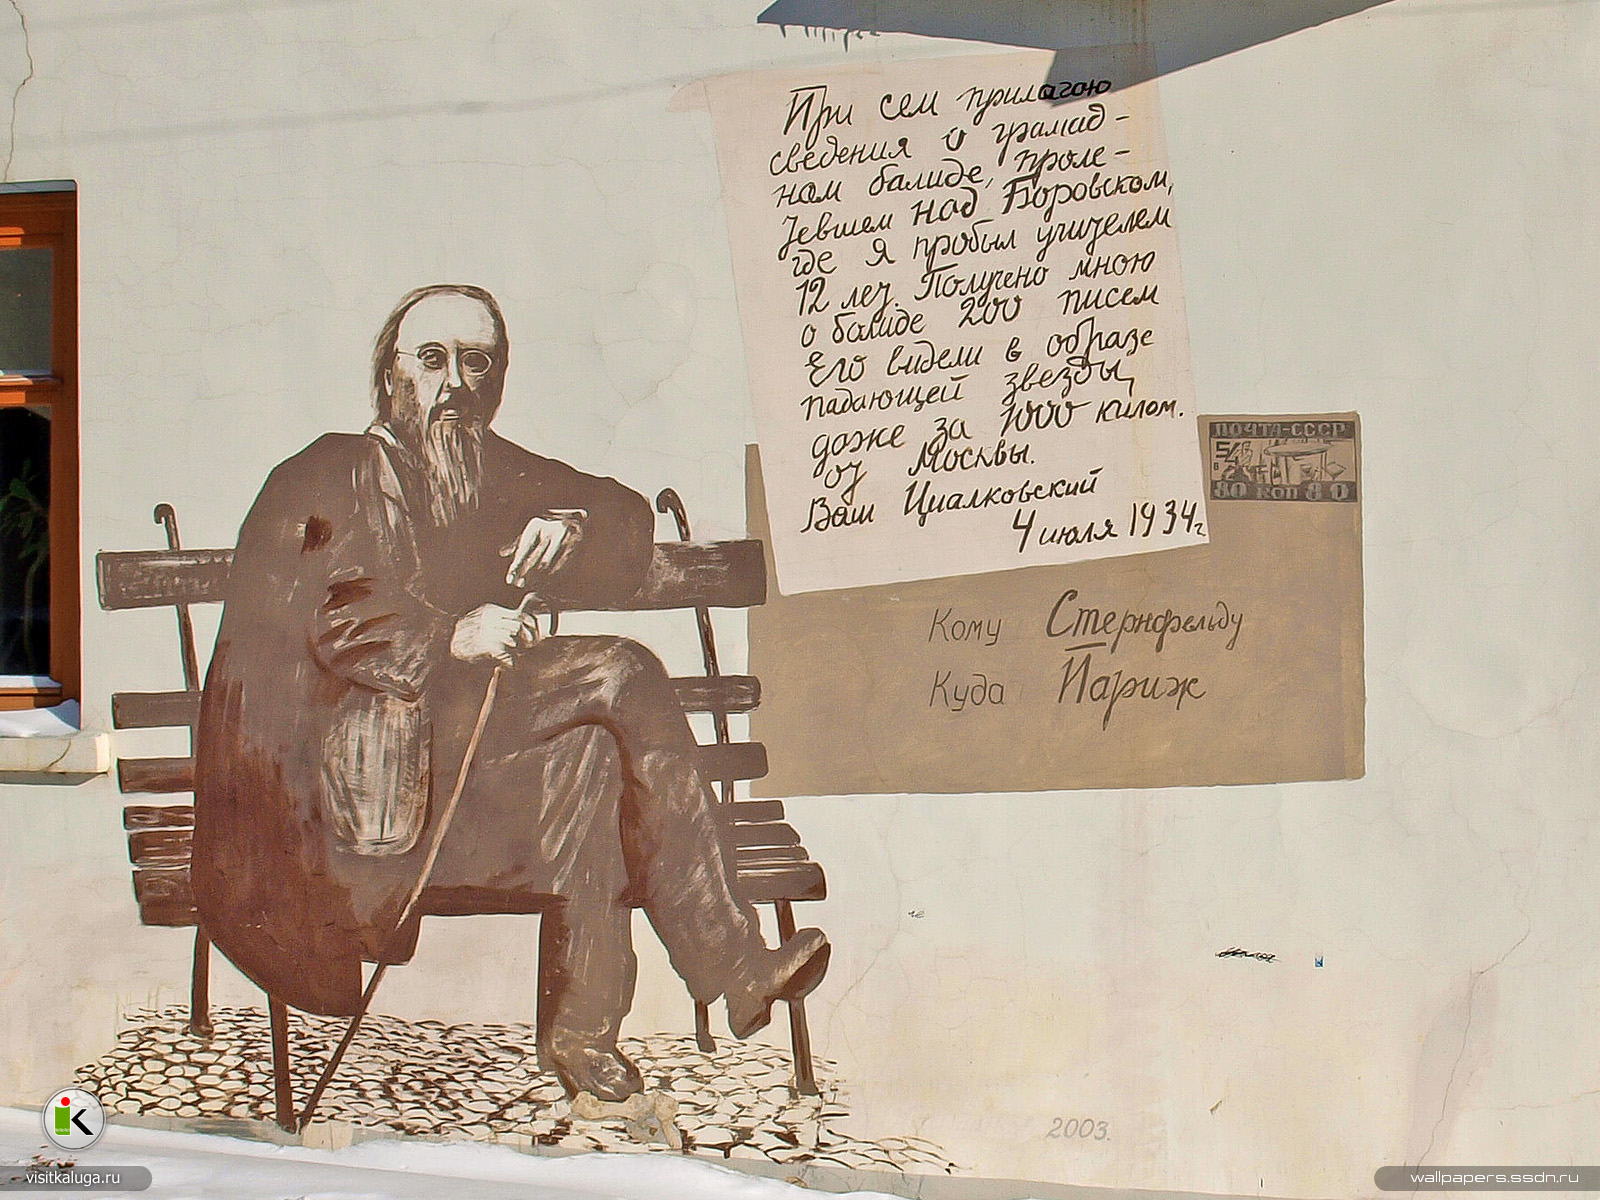 При сем прилагаю
сведения о грамад-
ном балиде, проле-
тевшем над Боровском,
где я пробыл учителем
12 лет. Получено мною
о балиде 200 писем
Его видели в образе
падающей звезды,
даже за 1000 килом.
от Москвы.
Ваш Циалковский
4 июля 1934г.
ПОЧТА-СССР
80 коп 80
Кому Стернфельду
Куда Париж
2003.
visitkaluga.ru
wallpapers.ssdn.ru